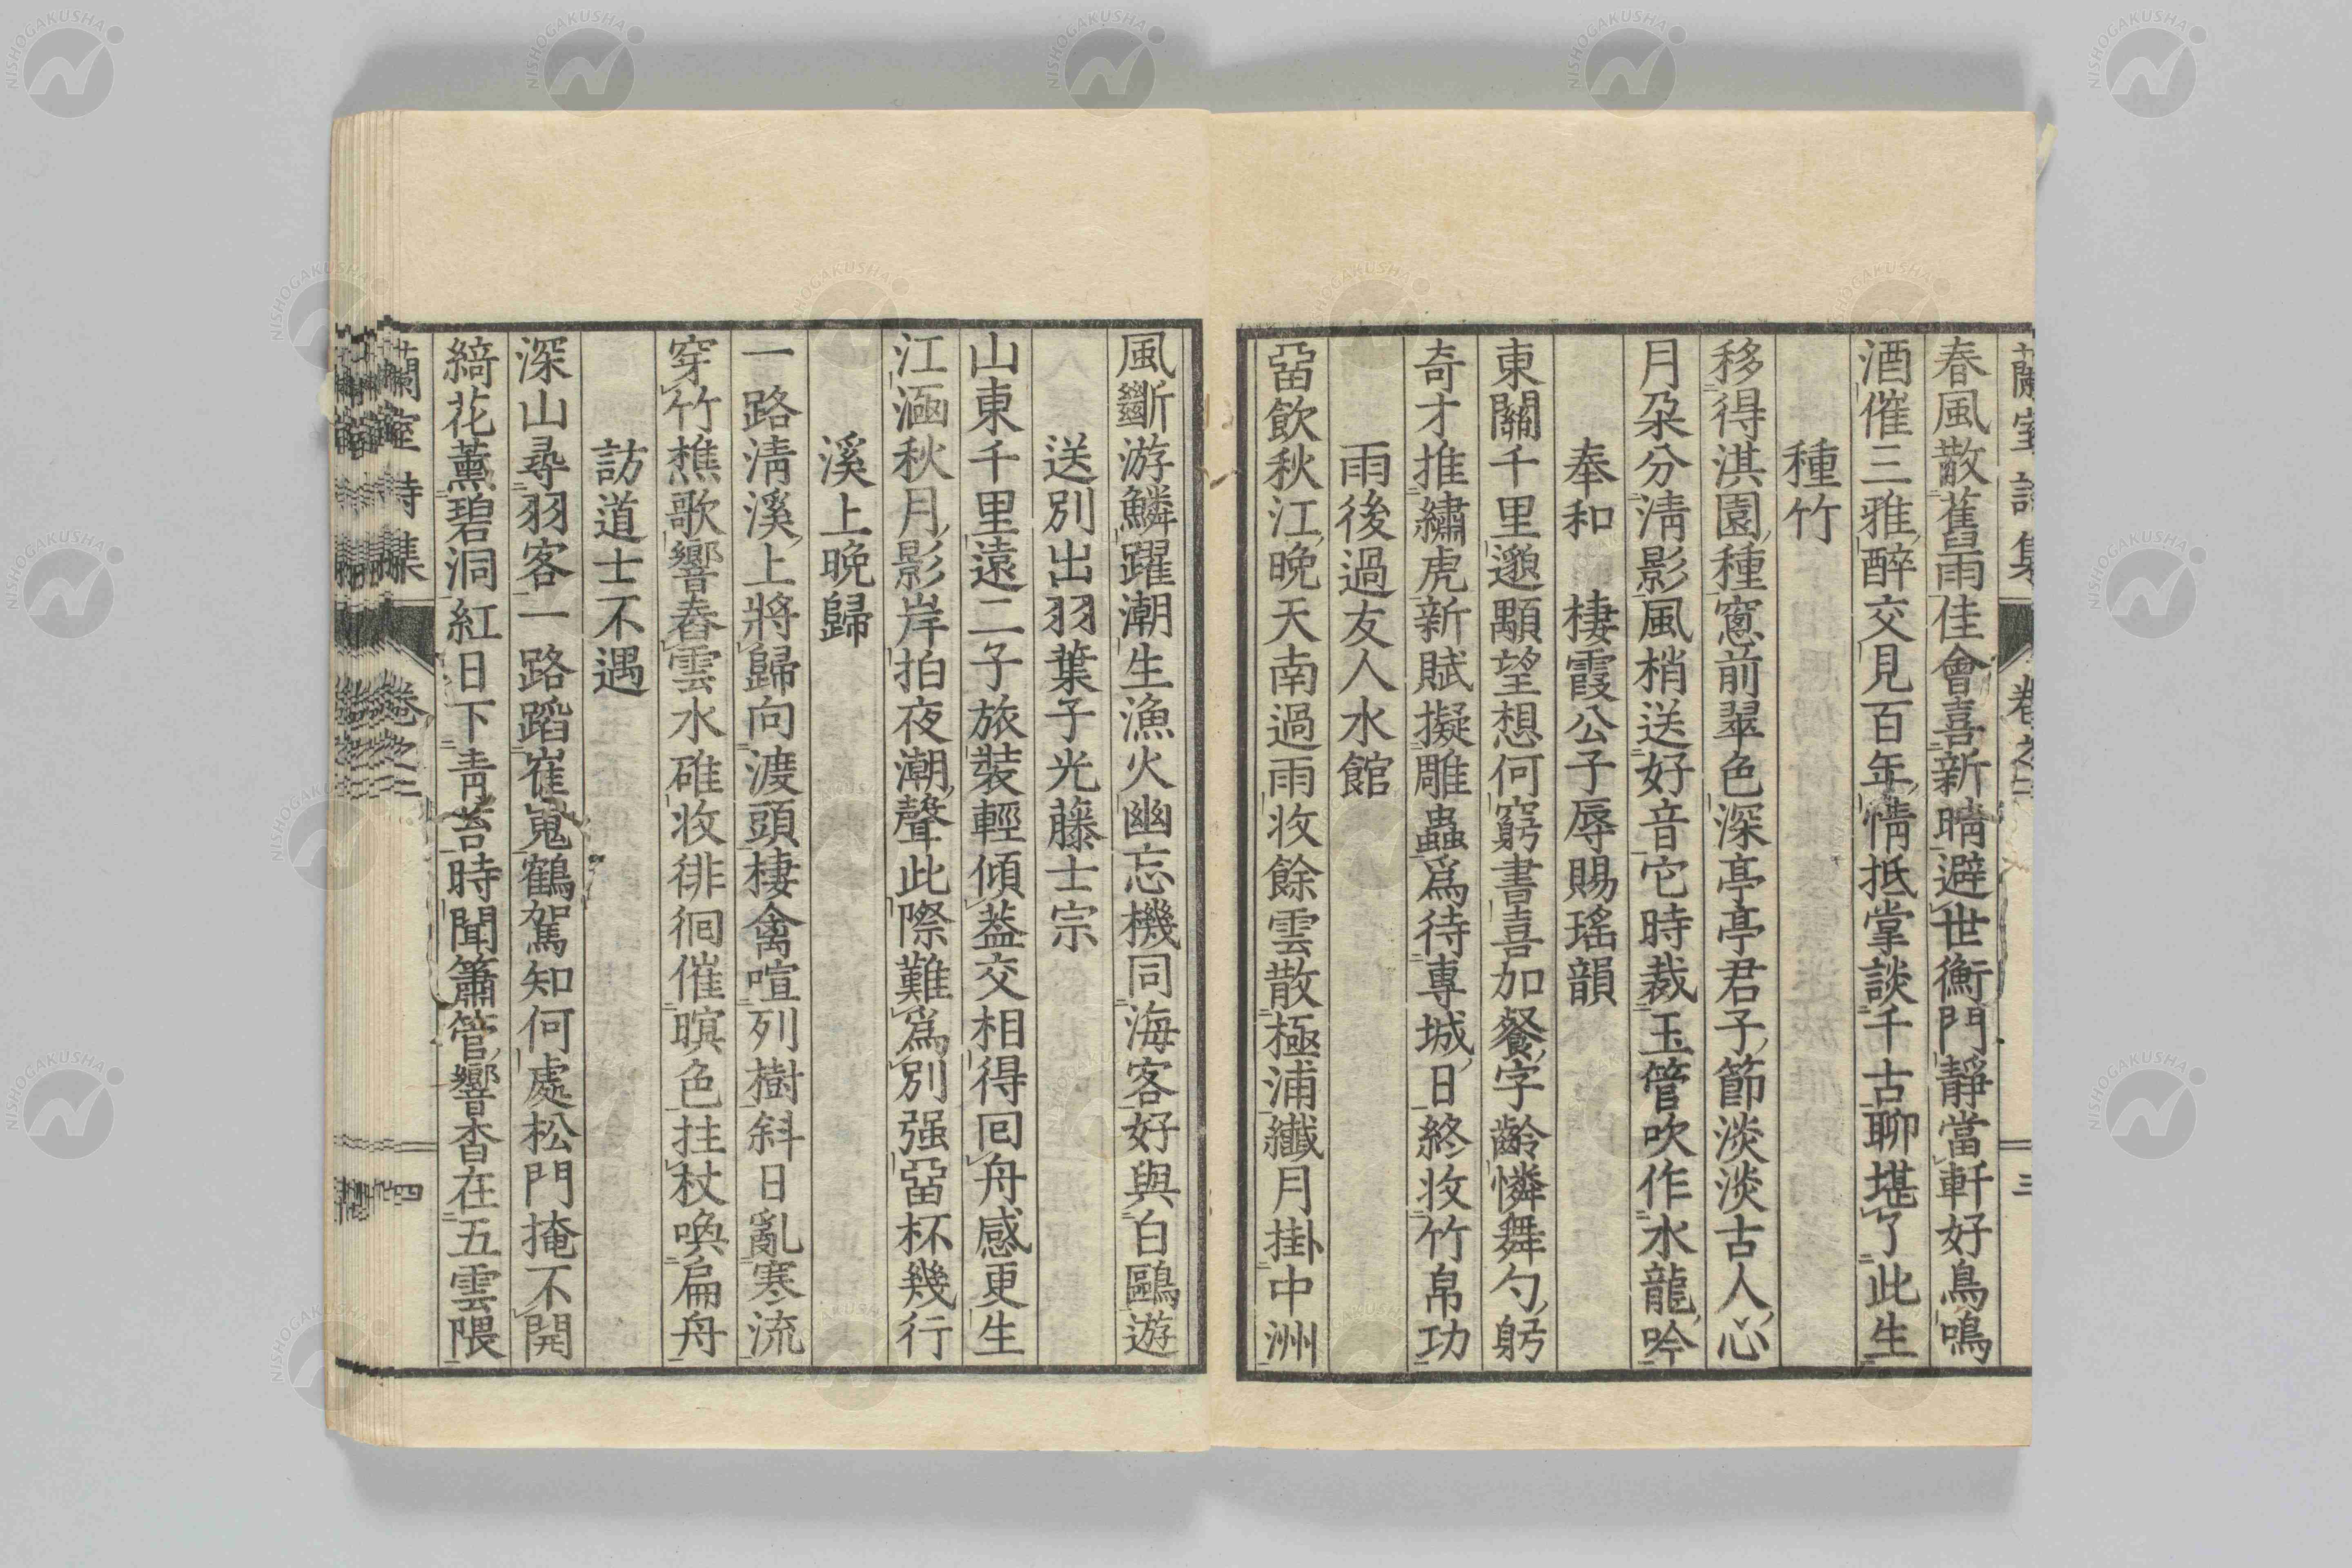 蘭室詩集 卷之二 三
春風散舊雨佳會喜新晴避世衡門靜當軒好鳥鳴
酒催三雅醉交見百年情抵掌談千古聊堪了此生
種竹
移得淇園種窻前翠色深亭亭君子節淡淡古人心
月朶分淸影風梢送好音它時裁玉管吹作水龍吟
奉和 棲霞公子辱賜瑤韻
東關千里邈顒望想何窮書喜加餐字齡憐舞勺躬
奇才推繡虎新賦擬雕蟲爲待專城日終收竹帛功
雨後過友人水館
畱飮秋江晚天南過雨收餘雲散極浦纖月掛中洲
風斷游鱗躍潮生漁火幽忘機同海客好與白鷗遊
送別出羽葉子光藤士宗
山東千里遠二子旅裝輕傾葢交相得囘舟感更生
江涵秋月影岸拍夜潮聲此際難爲別强畱杯幾行
溪上晚歸
一路淸溪上將歸向渡頭棲禽喧列樹斜日亂寒流
穿竹樵歌響舂雲水碓收徘徊催暝色拄杖喚扁舟
訪道士不遇
深山尋羽客一路蹈崔嵬鶴駕知何處松門掩不開
綺花薰碧洞紅日下靑苔時聞簫管響杳在五雲隈
蘭室詩集 卷之二 四
NISHOGAKUSHA